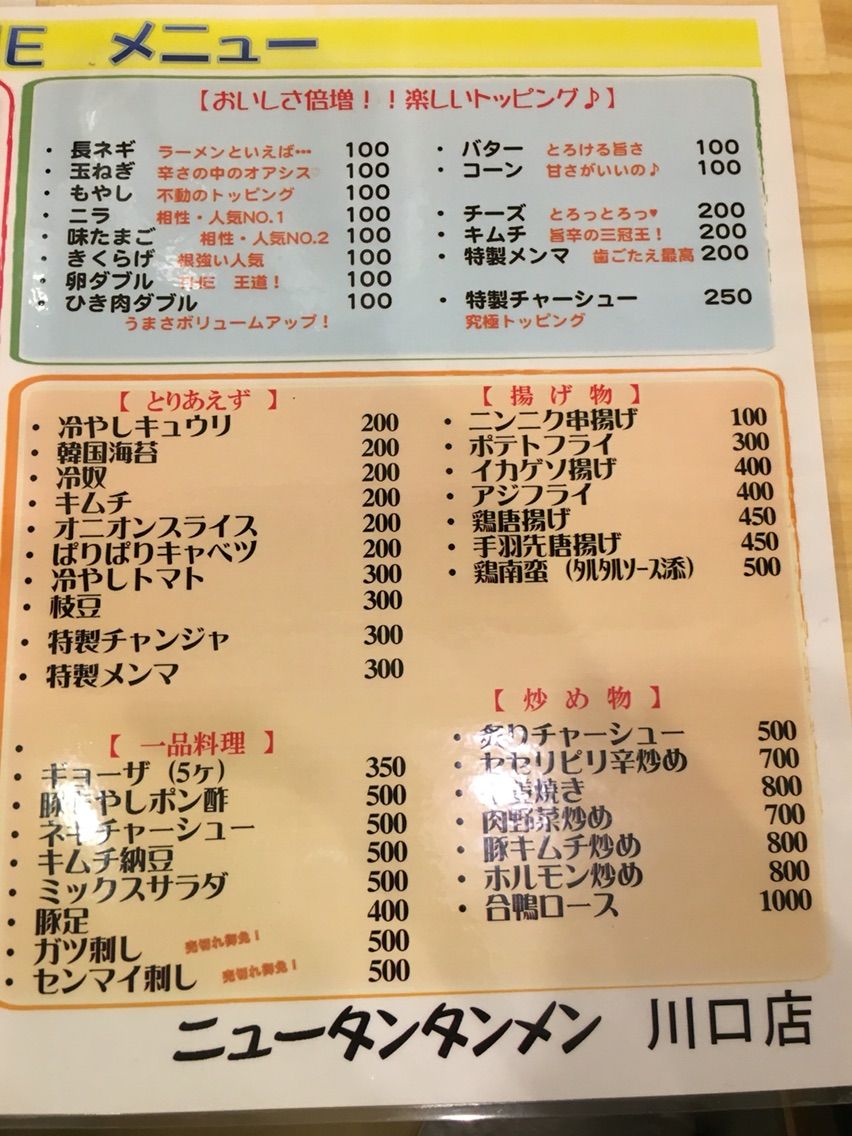 E メニュー
【おいしさ倍増！！楽しいトッピング♪】
・長ネギ ラーメンといえば… 100
・玉ねぎ 辛さの中のオアシス 100
・もやし 不動のトッピング 100
・ニラ 相性・人気NO.1 100
・味たまご 相性・人気NO.2 100
・きくらげ 根強い人気 100
・卵ダブル THE 王道！ 100
・ひき肉ダブル 100
うまさボリュームアップ！
・バター とろける旨さ 100
・コーン 甘さがいいの♪ 100
・チーズ とろっとろっ♥ 200
・キムチ 旨辛の三冠王！ 200
・特製メンマ 歯ごたえ最高 200
・特製チャーシュー 250
究極トッピング
【とりあえず】
・冷やしキュウリ 200
・韓国海苔 200
・冷奴 200
・キムチ 200
・オニオンスライス 200
・ぱりぱりキャベツ 200
・冷やしトマト 300
・枝豆 300
・特製チャンジャ 300
・特製メンマ 300
・【一品料理】
・ギョーザ（5ケ） 350
・豚 やしポン酢 500
・ネギチャーシュー 500
・キムチ納豆 500
・ミックスサラダ 500
・豚足 400
・ガツ刺し 売切れ御免！ 500
・センマイ刺し 売切れ御免！ 500
【揚げ物】
・ニンニク串揚げ 100
・ポテトフライ 300
・イカゲソ揚げ 400
・アジフライ 400
・鶏唐揚げ 450
・手羽先唐揚げ 450
・鶏南蛮（タルタルソース添） 500
【炒め物】
・炙りチャーシュー 500
・セセリピリ辛炒め 700
・焼き 800
・肉野菜炒め 700
・豚キムチ炒め 800
・ホルモン炒め 800
・合鴨ロース 1000
ニュータンタンメン 川口店